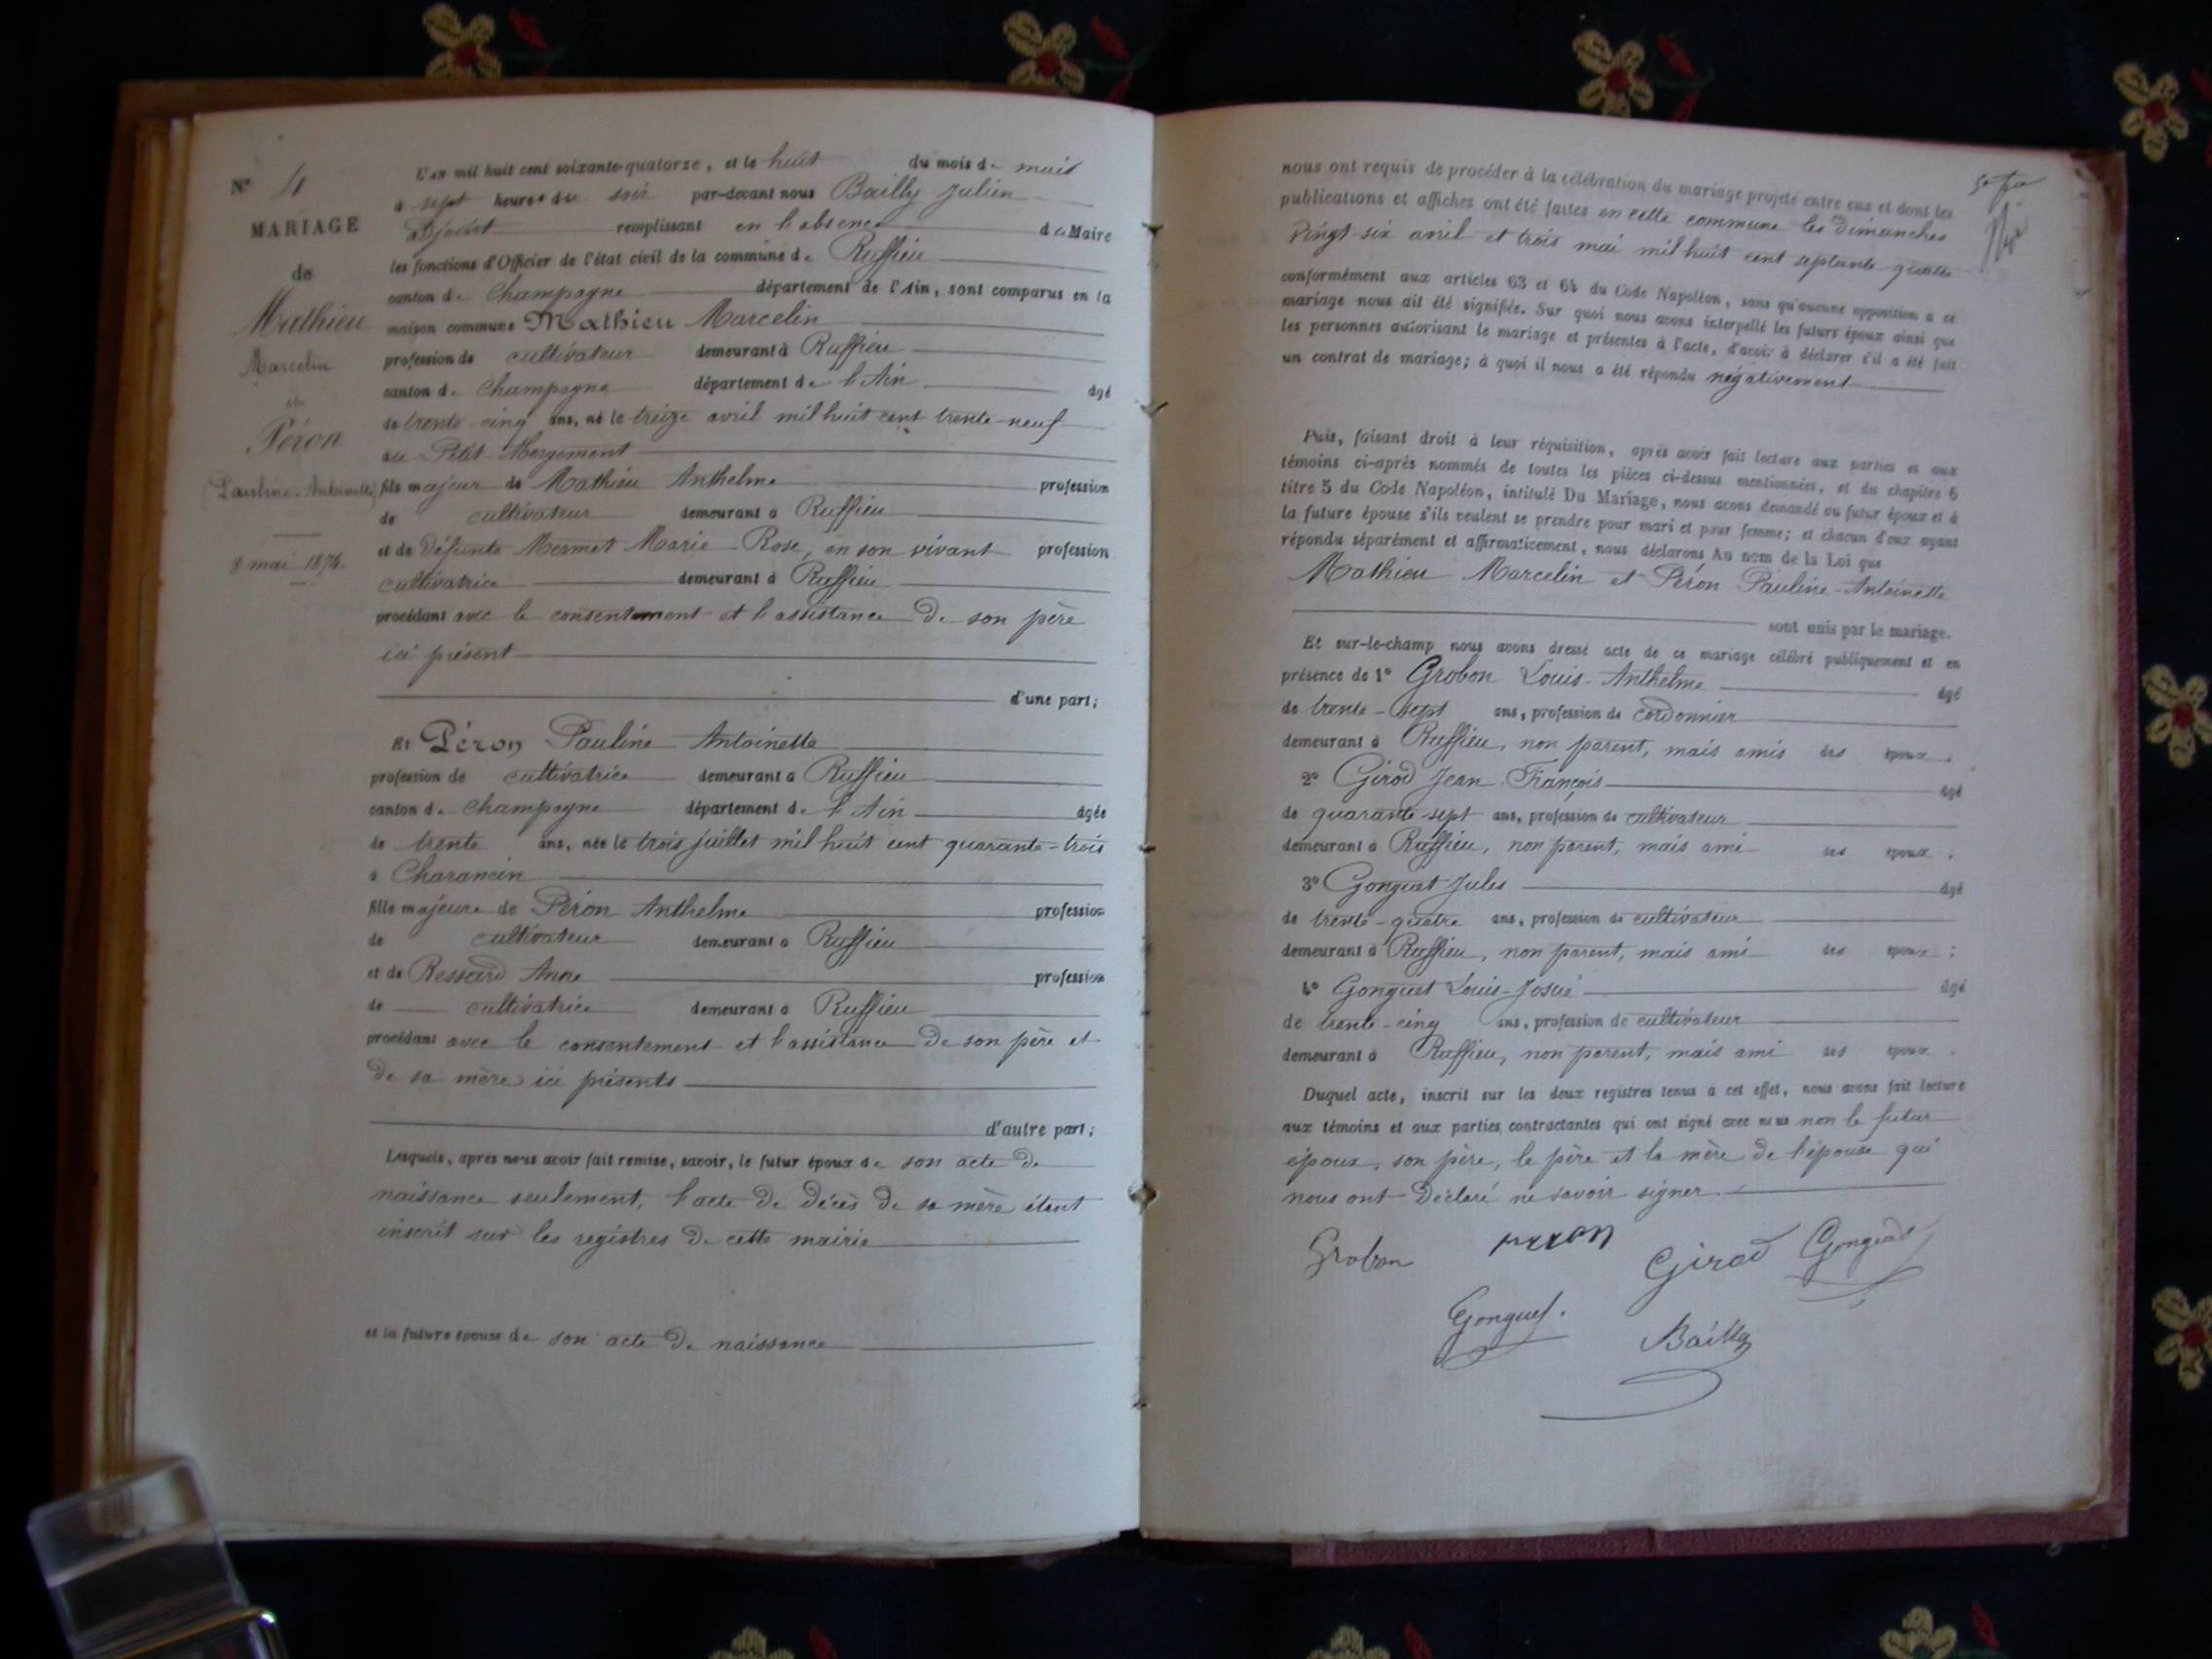 N° 4
MARIAGE
de
Mathieu
Marcelin
et
Péron
(Pauline-Antoinette)
8 mai 1874.
L'an mil huit cent soixante-quatorze, et le huit du mois de mai
à sept heures du soir par-devant nous Bailly Julien
adjoint remplissant en l'absence du Maire
les fonctions d'Officier de l'état civil de la commune de Ruffieu
canton de Champagne département de l'Ain, sont comparus en la
maison commune Mathieu Marcelin
profession de cultivateur demeurant à Ruffieu
canton de Champagne département de l'Ain âgé
de trente-cinq ans, né le treize avril mil huit cent trente-neuf
au Petit-Abergement
fils majeur de Mathieu Anthelme profession
de cultivateur demeurant à Ruffieu
et de défunte Mermet Marie-Rose, en son vivant profession
cultivatrice demeurant à Ruffieu
procédant avec le consentement et l'assistance de son père
ici présent
d'une part;
Et Péron Pauline Antoinette
profession de cultivatrice demeurant à Ruffieu
canton de Champagne département de l'Ain âgée
de trente ans, née le trois juillet mil huit cent quarante-trois
à Charancin
fille majeure de Péron Anthelme profession
de cultivateur demeurant à Ruffieu
et de Bessard Anne profession
de cultivatrice demeurant à Ruffieu
procédant avec le consentement et l'assistance de son père et
de sa mère ici présents
d'autre part;
Lesquels, après nous avoir fait remise, savoir, le futur époux de son acte de
naissance seulement, l'acte de décès de sa mère étant
inscrit sur les registres de cette mairie
et la future épouse de son acte de naissance
nous ont requis de procéder à la célébration du mariage projeté entre eux et dont les
publications et affiches ont été faites en cette commune les dimanches
vingt-six avril et trois mai mil huit cent septante quatre
conformément aux articles 63 et 64 du Code Napoléon, sans qu'aucune opposition à ce
mariage nous ait été signifiée. Sur quoi nous avons interpellé les futurs époux ainsi que
les personnes autorisant le mariage et présentes à l'acte, d'avoir à déclarer s'il a été fait
un contrat de mariage; à quoi il nous a été répondu négativement
Puis, faisant droit à leur réquisition, après avoir fait lecture aux parties et aux
témoins ci-après nommés de toutes les pièces ci-dessus mentionnées, et du chapitre 6
titre 5 du Code Napoléon, intitulé Du Mariage, nous avons demandé au futur époux et à
la future épouse s'ils veulent se prendre pour mari et pour femme; et chacun d'eux ayant
répondu séparément et affirmativement, nous déclarons Au nom de la Loi que
Mathieu Marcelin et Péron Pauline-Antoinette
sont unis par le mariage.
Et sur-le-champ nous avons dressé acte de ce mariage célébré publiquement et en
présence de 1° Grobon Louis-Anthelme âgé
de trente-sept ans, profession de cordonnier
demeurant à Ruffieu, non parent, mais amis des époux.
2° Girod Jean-François âgé
de quarante-sept ans, profession de cultivateur
demeurant à Ruffieu, non parent, mais ami des époux.
3° Gonguet Jules âgé
de trente-quatre ans, profession de cultivateur
demeurant à Ruffieu, non parent, mais ami des époux;
4° Gonguet Louis-Josué âgé
de trente-cinq ans, profession de cultivateur
demeurant à Ruffieu, non parent, mais ami des époux.
Duquel acte, inscrit sur les deux registres tenus à cet effet, nous avons fait lecture
aux témoins et aux parties contractantes qui ont signé avec nous non le futur
époux, son père, le père et la mère de l'épouse qui
nous ont déclaré ne savoir signer.
Grobon Girod Gonguet
Gonguet. Bailly